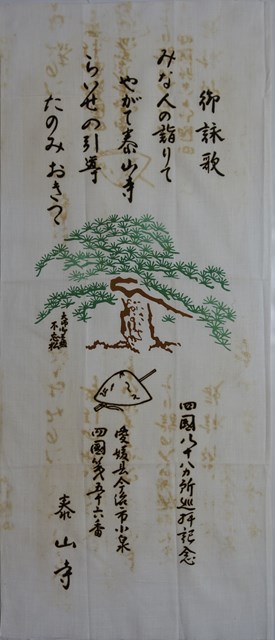 御詠歌
みな人の詣りて
やがて泰山寺
らいせの引導
たのみおきつゝ
不忘松
四國八十八カ所巡拝記念
愛媛県今治市小泉
四國第五十六番
泰山寺